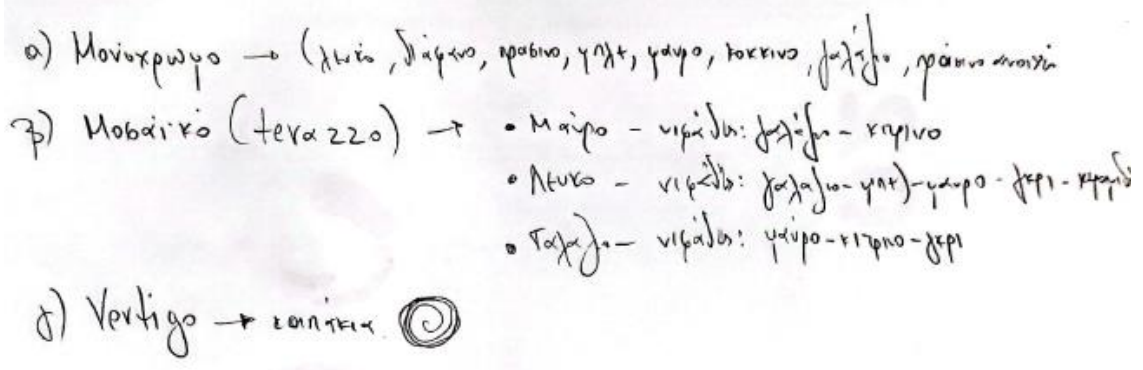 α) Μονόχρωμο → (λευκό, διάφανο, πράσινο, μπλε, μαύρο, κόκκινο, γαλάζιο, πράσινο ανοιχτό
β) Μοσαϊκό (terazzo) → • Μαύρο - νιφάδες: γαλάζιο - κίτρινο
• Λευκο - νιφάδες: γαλάζιο - μπλε - μαύρο - γκρι - κεραμιδί
• Γαλάζιο - νιφάδες: μαύρο - κίτρινο - γκρι
γ) Vertigo → καπάκια